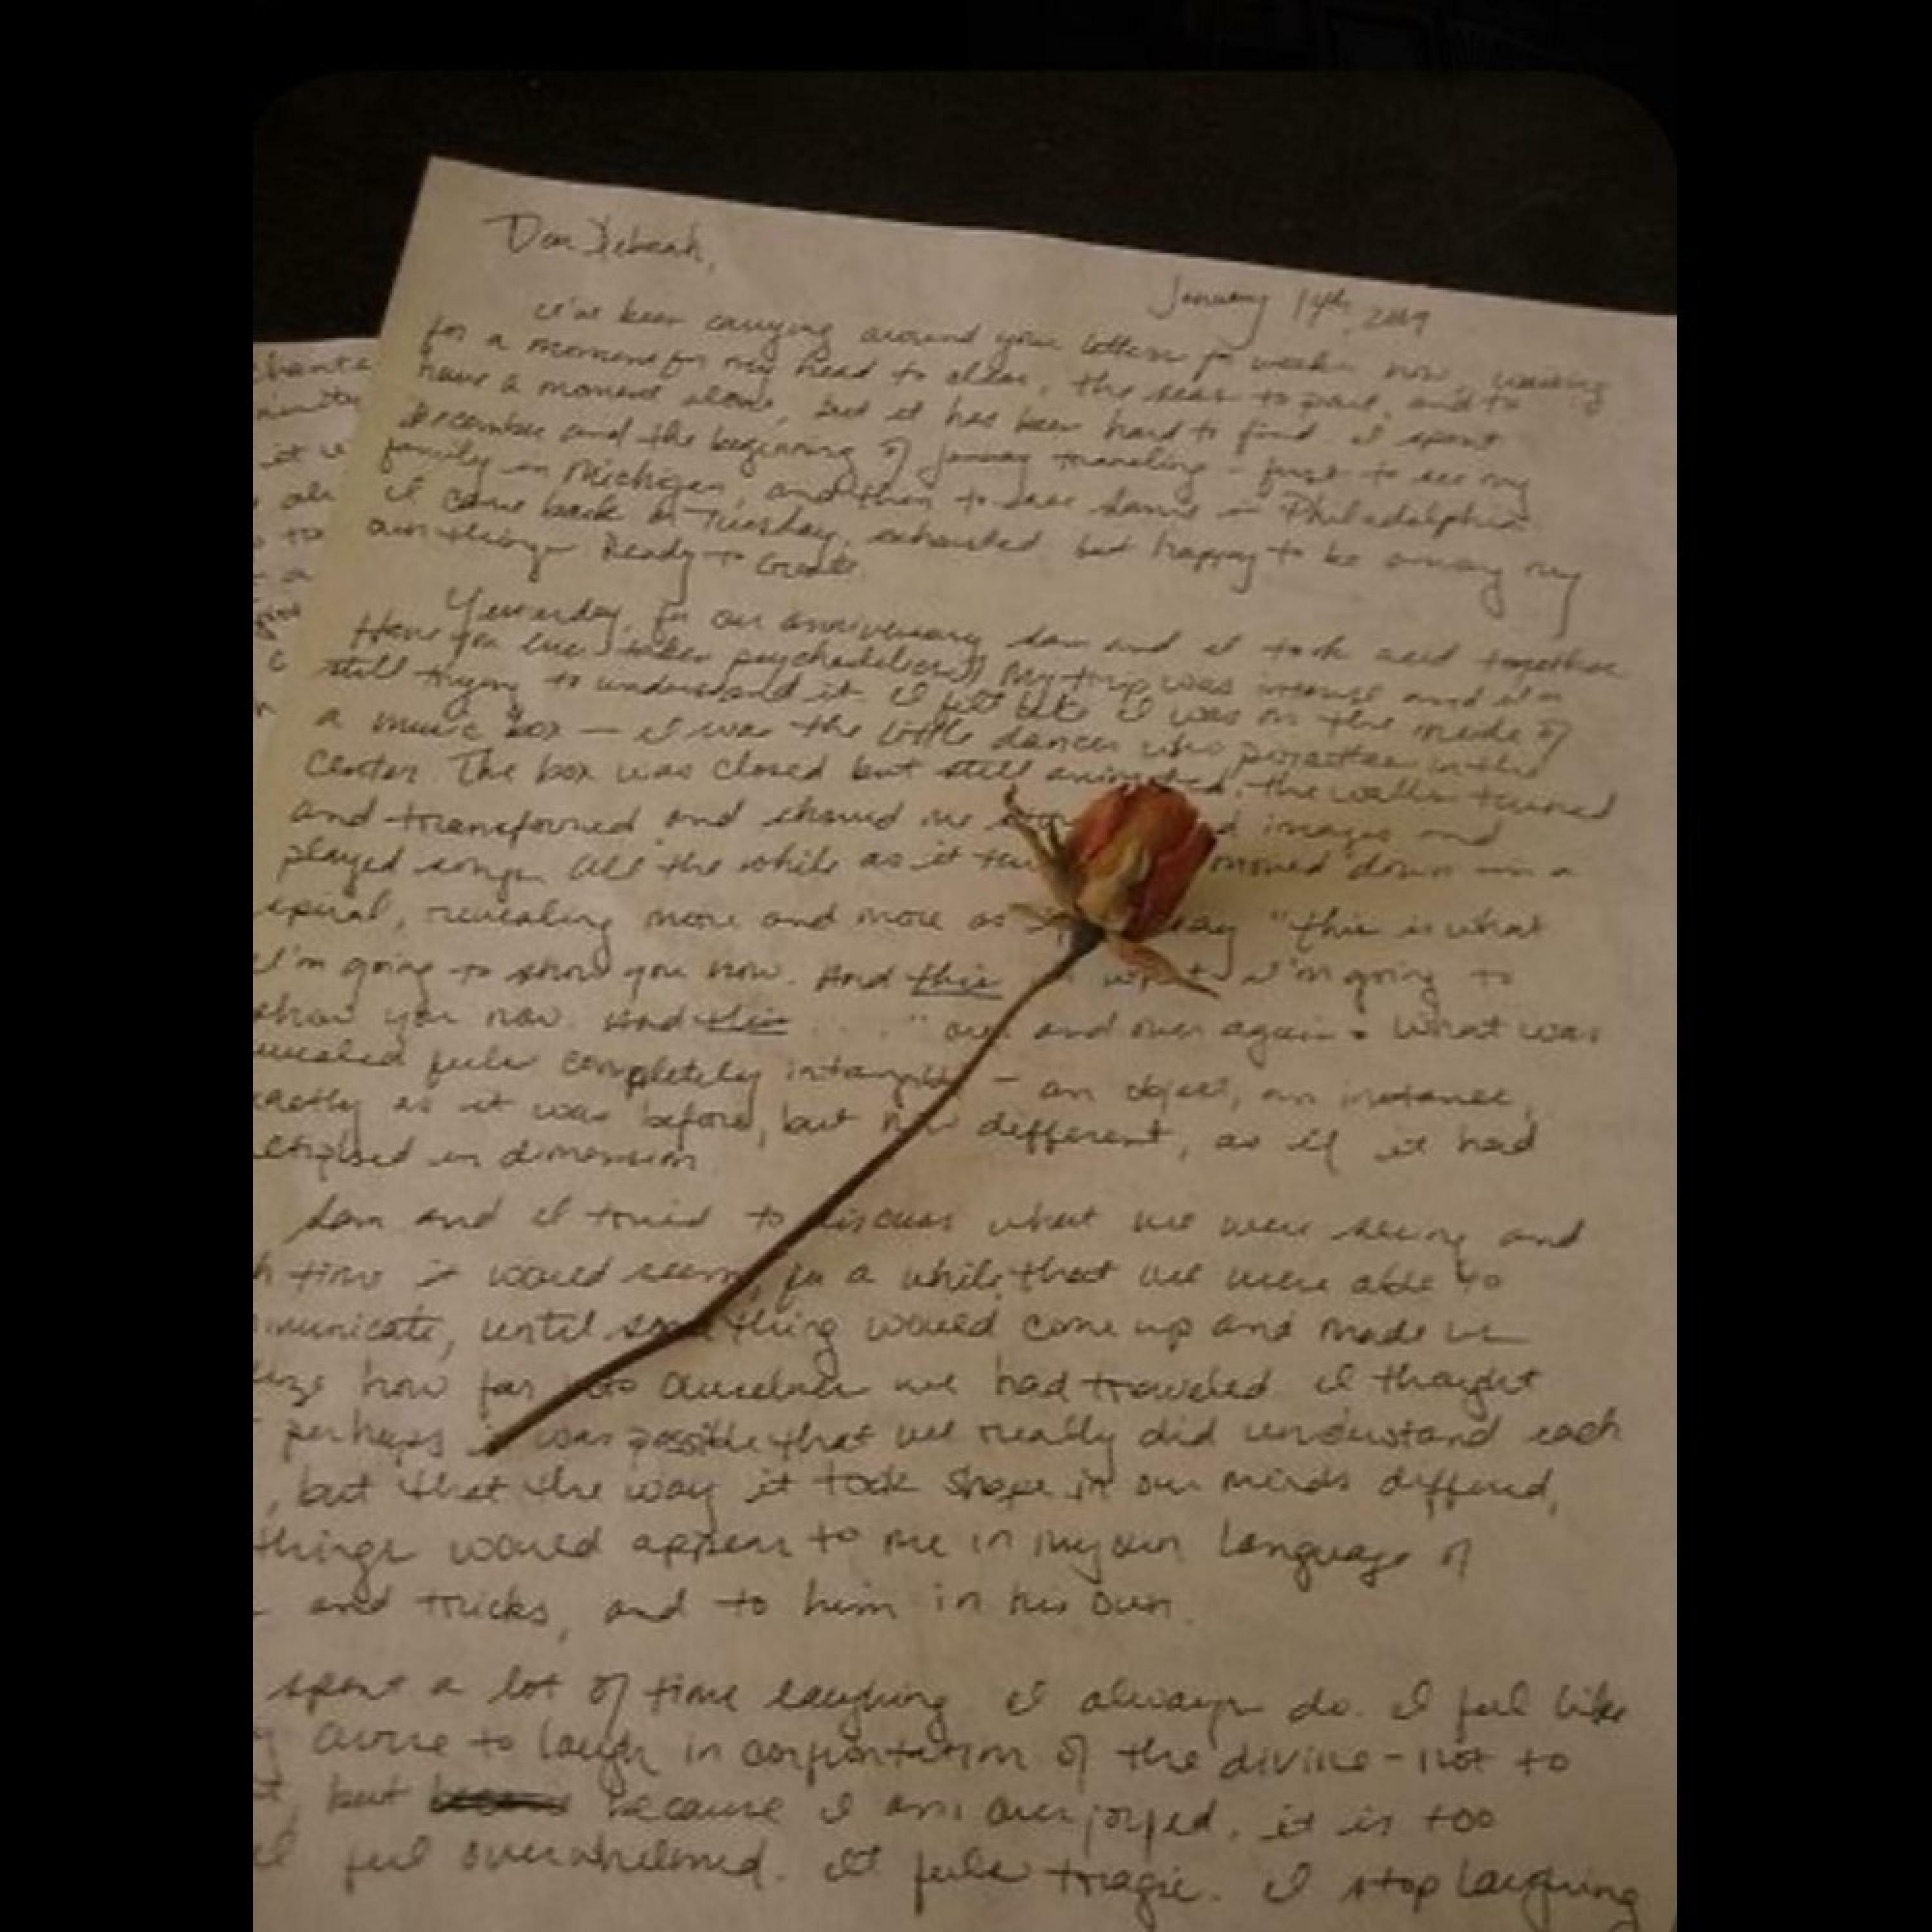 Dear Deborah,
January 14th, 2019
I've been carrying around your letters for weeks now, waiting
for a moment for my head to clear, the seas to part, and to
have a moment alone, but it has been hard to find. I spent
December and the beginning of January traveling - first to see my
family in Michigan, and then to see Sam's in Philadelphia.
I came back on Tuesday, exhausted, but happy to be among my
own things. Ready to create.
Yesterday, for our anniversary Sam and I took acid together.
Have you ever taken psychedelics? My trip was intense and I'm
still trying to understand it. I felt like I was on the inside of
a music box — I was the little dancer who pirouettes in the
center. The box was closed but still animated, the walls turned
and transformed and showed me images and
played songs. All the while as it moved down in a
spiral, revealing more and more as say "this is what
I'm going to show you now. And this what I'm going to
show you now. And this . . . ." over and over again. What was
revealed feels completely intangible - an object, an instance,
exactly as it was before, but now different, as if it had
in dimension.
Sam and I tried to discuss what we were seeing and
time it would seem, for a while, that we were able to
communicate, until something would come up and made us
how far into ourselves we had traveled. I thought
perhaps it was possible that we really did understand each
, but that the way it took shape in our minds differed,
things would appear to me in my own language of
and tricks, and to him in his own.
spent a lot of time laughing. I always do. I feel like
to laugh in confrontation of the divine - not to
but because I am overjoyed, it is too
I feel overwhelmed. It feels tragic. I stop laughing